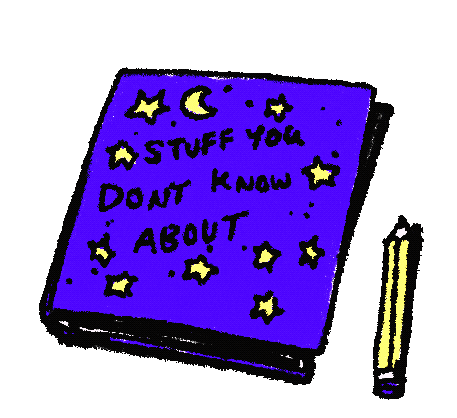 STUFF YOU
DONT KNOW
ABOUT